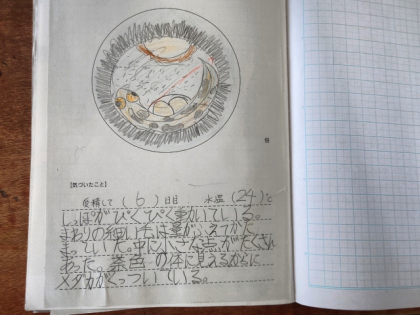 【気づいたこと】
受精して(6)日目 水温(24)℃
しっぽがぴくぴく動いている。
まわりの細い毛は量がふえてかた
まっていた。中に小さな点がたくさん
あった。茶色の体に見えるからに
メダカがくっついている。